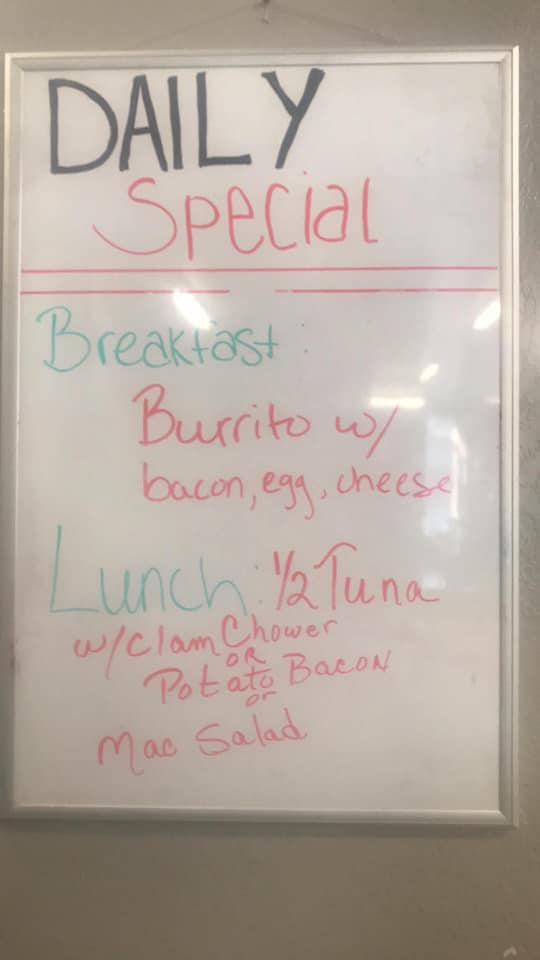 DAILY
Special
Breakfast:
Burrito w/
bacon, egg, cheese
Lunch: 1/2 Tuna
w/Clam Chower
OR
Potato Bacon
or
Mac Salad